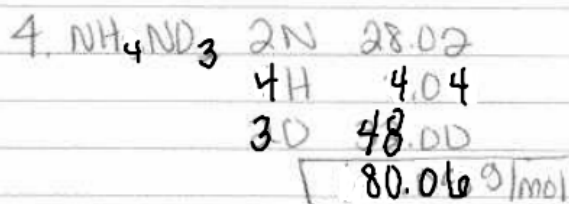 4. NH4NO3 2N 28.02
4H 4.04
3O 48.00
80.06 g/mol